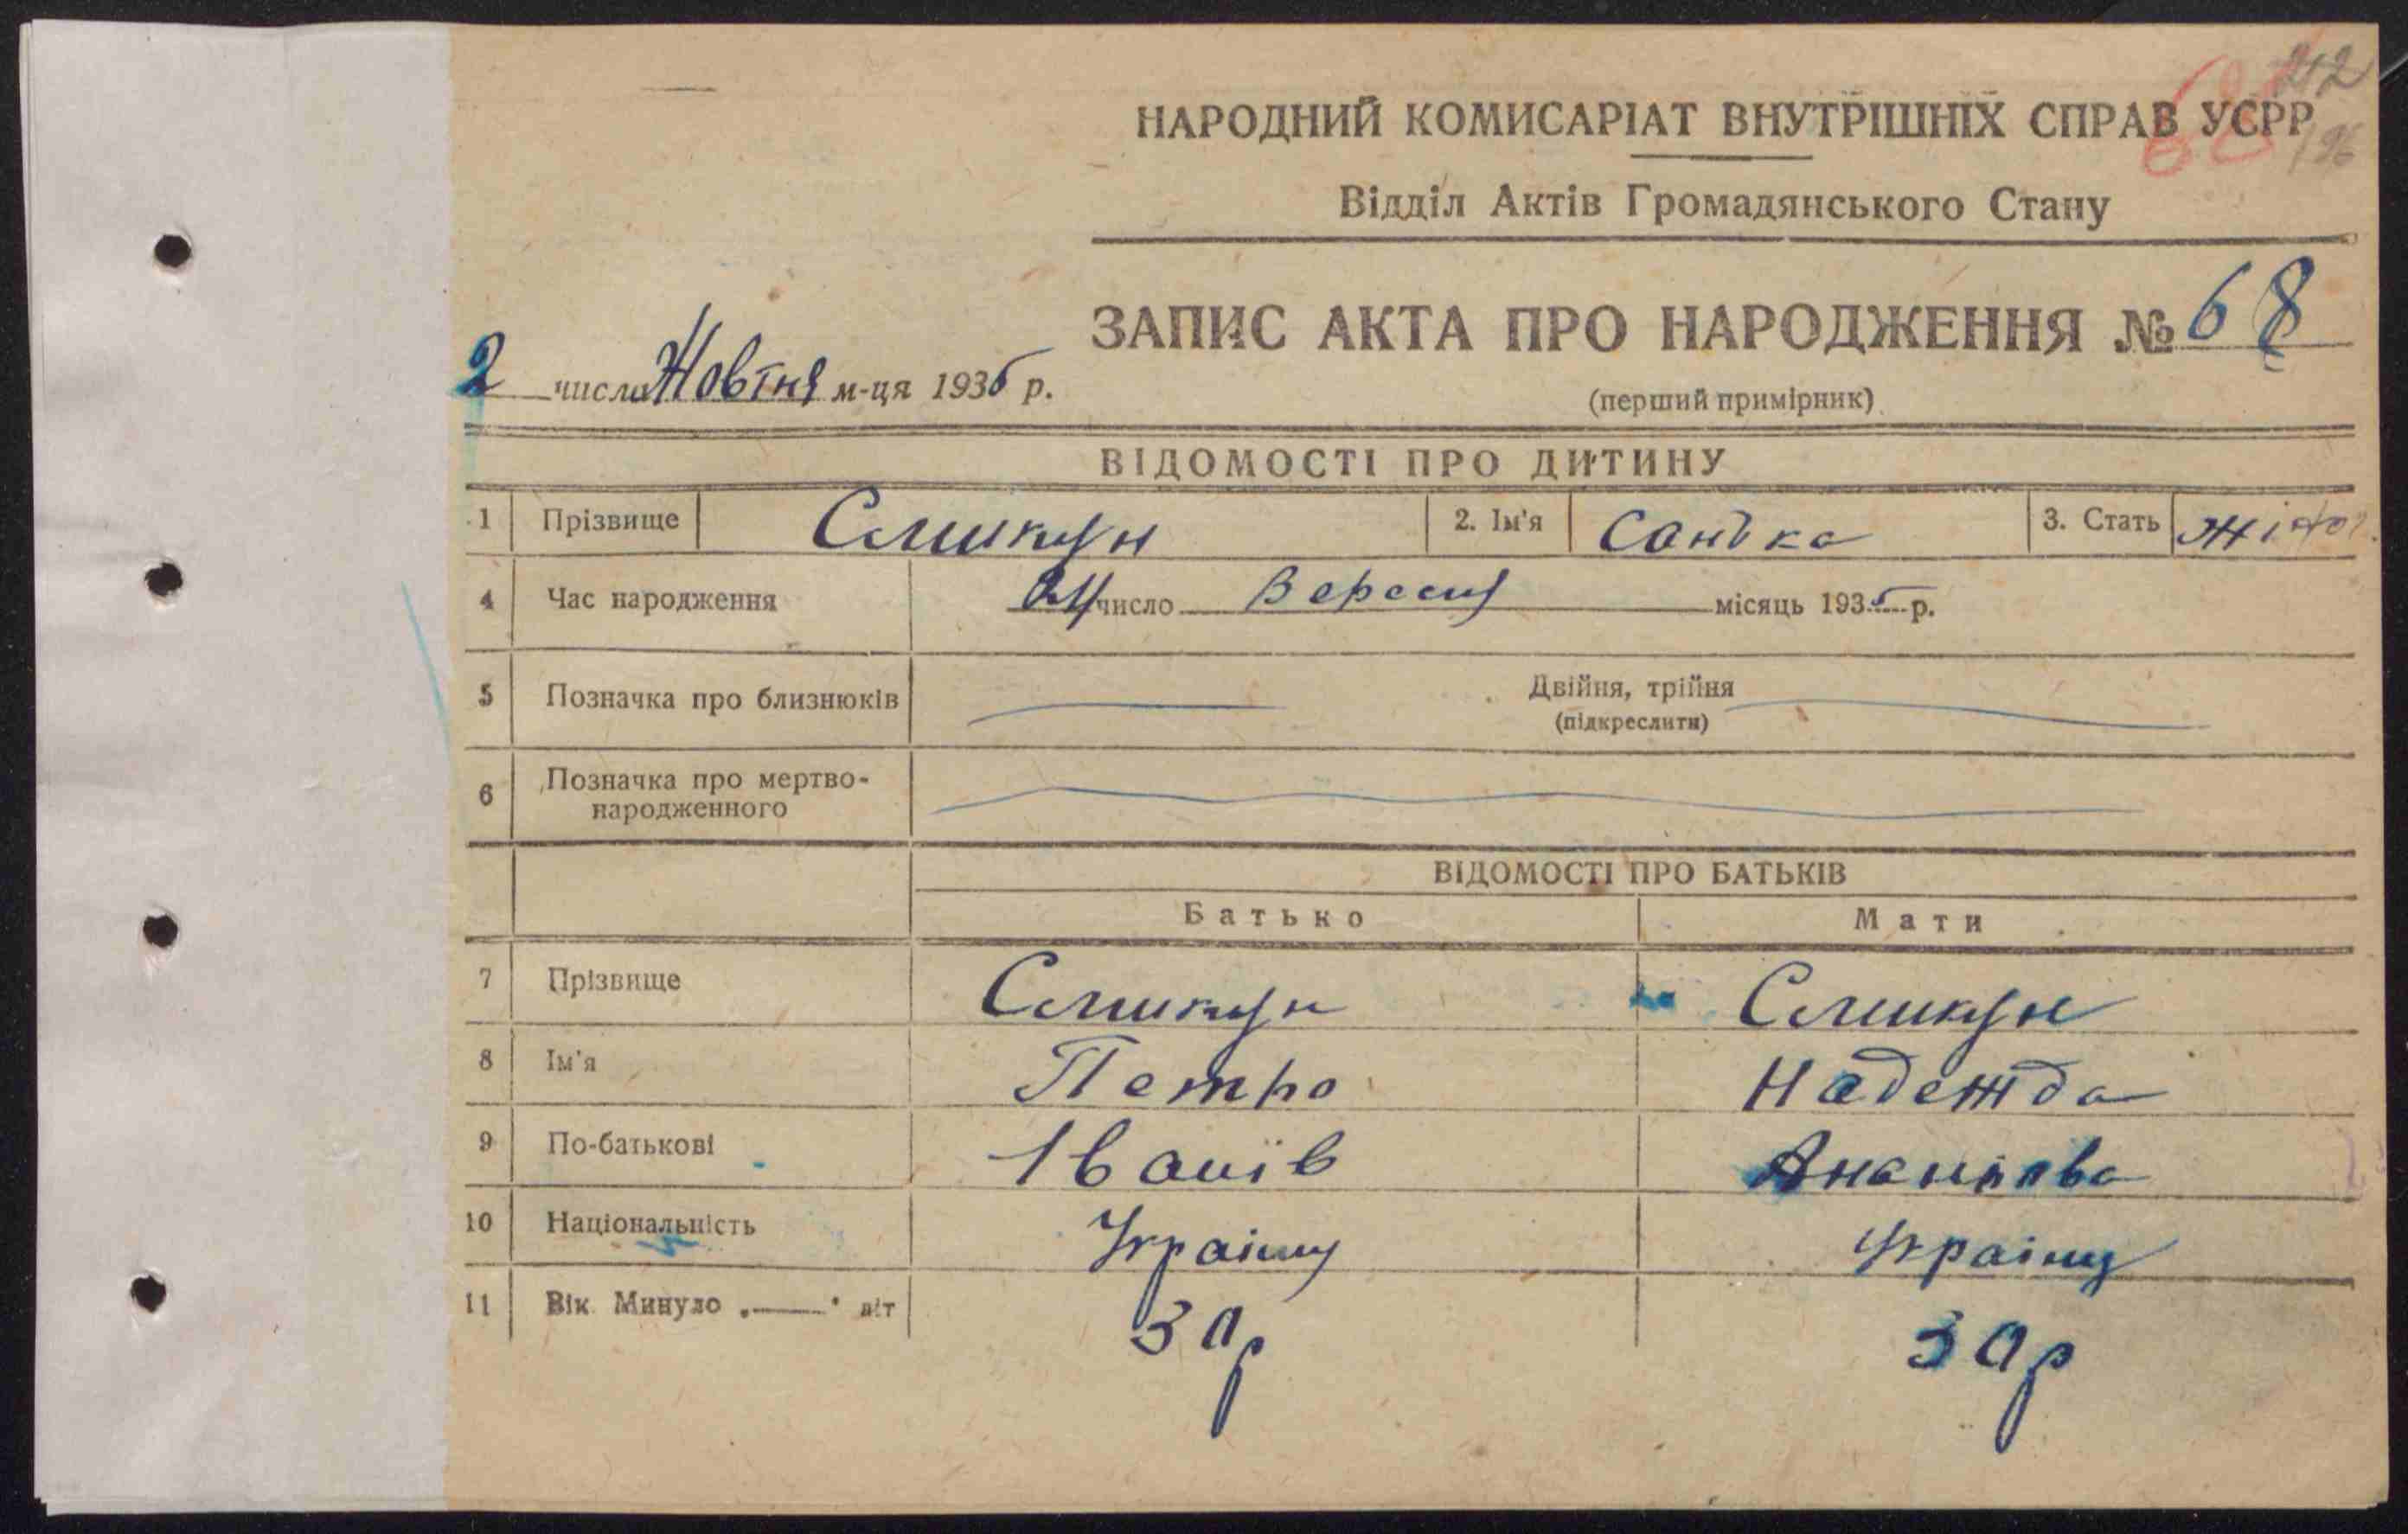 212
68
196
НАРОДНИЙ КОМИСАРІАТ ВНУТРІШНІХ СПРАВ УСРР
Відділ Актів Громадянського Стану
ЗАПИС АКТА ПРО НАРОДЖЕННЯ № 68
2 числа Жовтня м-ця 1935 р.
(перший примірник)
ВІДОМОСТІ ПРО ДИТИНУ
1 Прізвище Слишкун 2. Ім'я Санька 3. Стать
4 Час народження число Вересня місяць 1935 р.
5 Позначка про близнюків Двійня, трійня
(підкреслити)
6 Позначка про мертво-
народженного
ВІДОМОСТІ ПРО БАТЬКІВ
Батько Мати
7 Прізвище Слишкун Слишкун
8 Ім'я Петро Надежда
9 По-батькові Іванів
10 Національність Україну Україну
11 Вік Минуло „—" літ 30р 30р